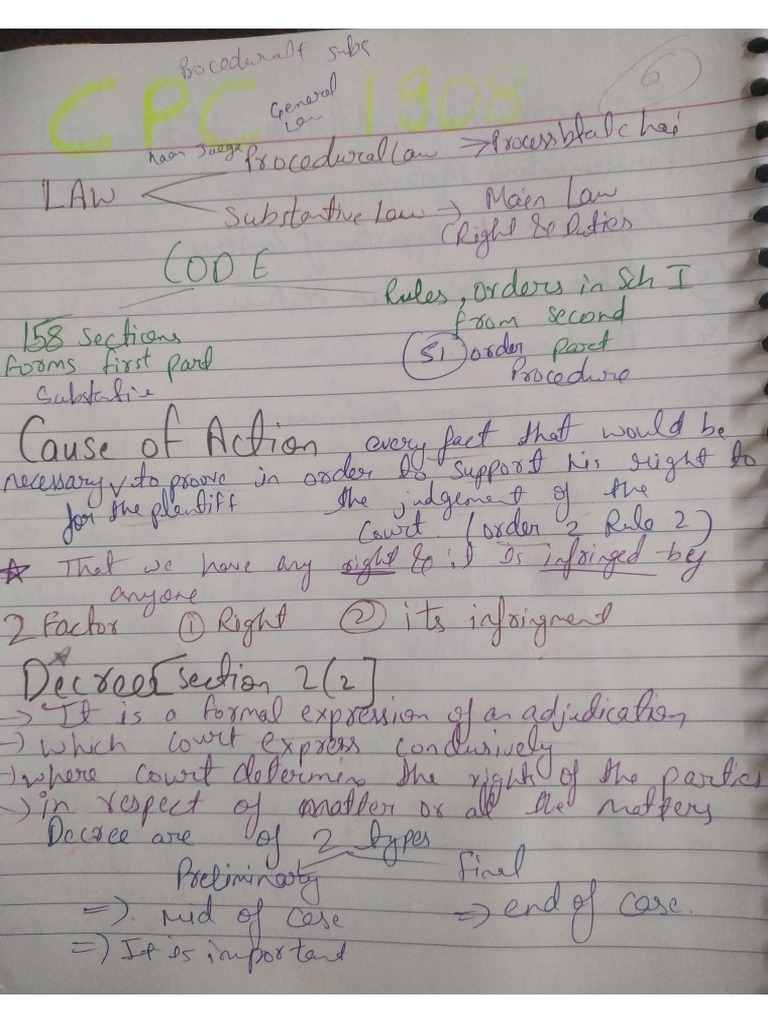 Procedural + subs
6
CPC 1908
General Law
Procedural Law → Process btata hai
LAW
Substantive Law → Main Law
(Right & Duties
CODE
Rules, orders in Sch I
from second
158 sections
forms first part
51 order part
Procedure
Substantive
Cause of Action every fact that would be
necessary to prove in order to support his right to
for the plentiff the judgement of the
Court. (order 2 Rule 2)
☆ That we have any right & it is infringed by
anyone
2 Factor ① Right ② its infringment
Decree [section 2(2]
→ It is a formal expression of an adjudication
→ which court express conclusively
→ where court determins the rights of the parties
→ in respect of matter or all the matters
Decree are of 2 types
Preliminary final
⇒ mid of case ⇒ end of case.
⇒ It is important